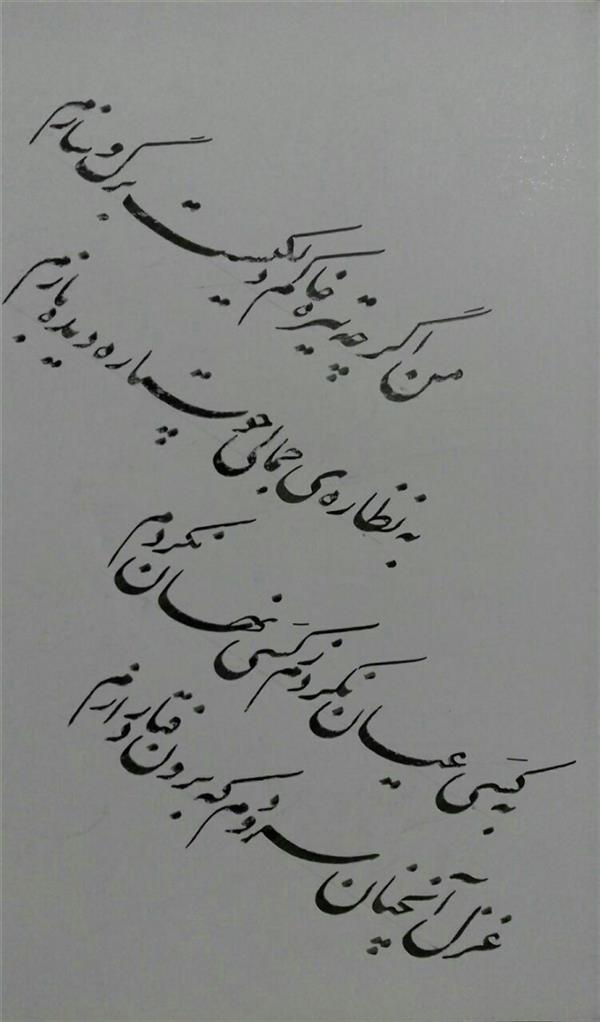 من اگرچه تیره خاکم دلکیست برگ و سازم
به نظاره‌ی جمالی چو ستاره دیده بازم
به کسی عیان نکردم ز کسی نهان نکردم
غزل آنچنان سرودم که برون فتد رازم